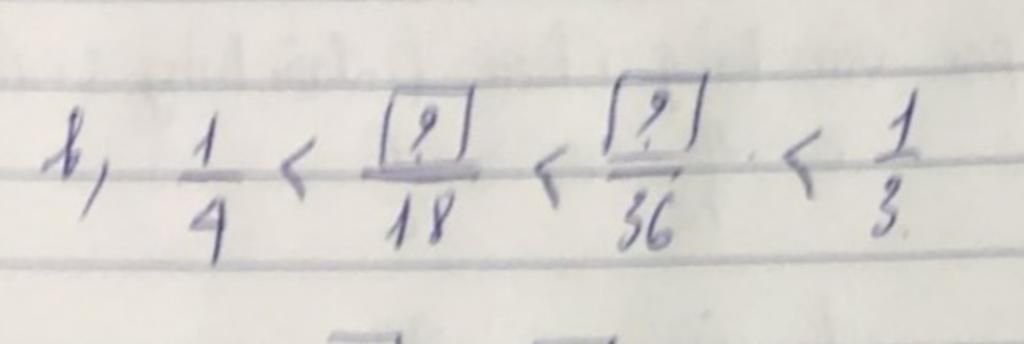 b, 1/4 < [?]/18 < [?]/36 < 1/3